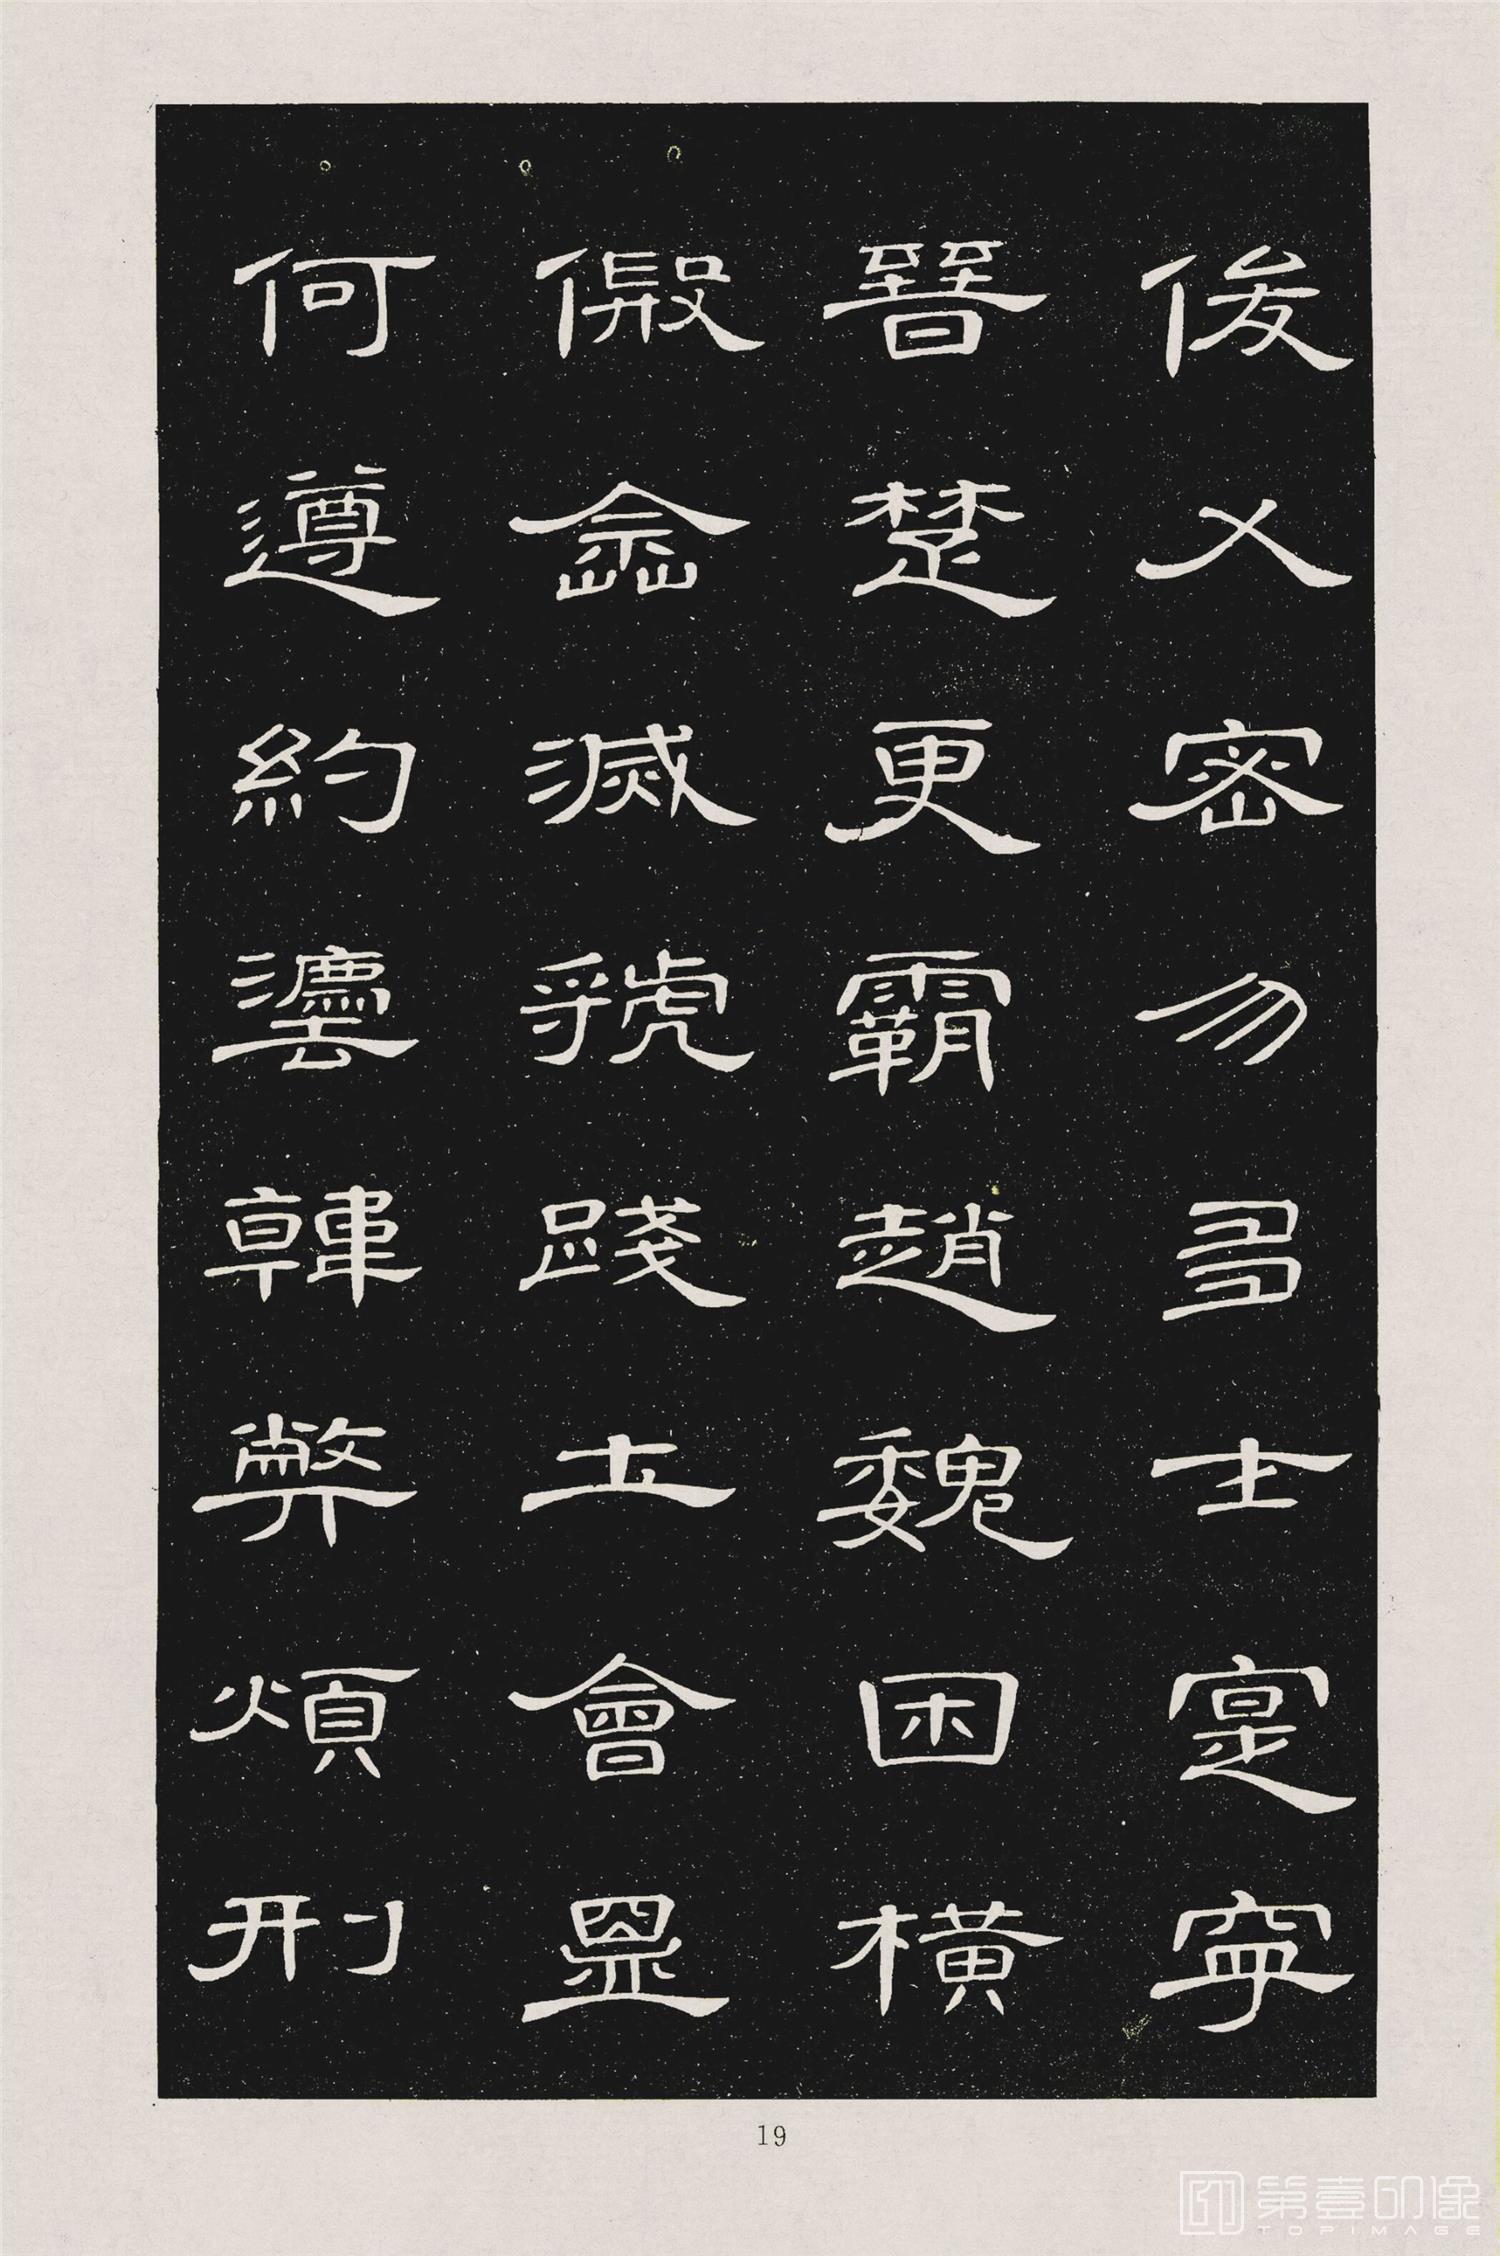 俊乂密勿多士寔寧
晉楚更霸趙魏困橫
假途滅虢踐土會盟
何遵約灋韓弊煩刑
19
第壹印像
TOPIMAGE